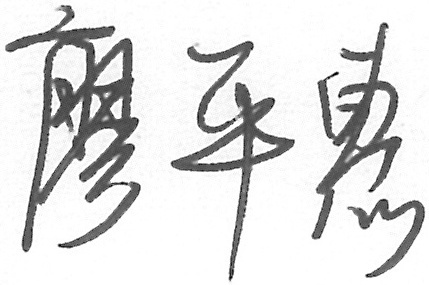 廖平惠